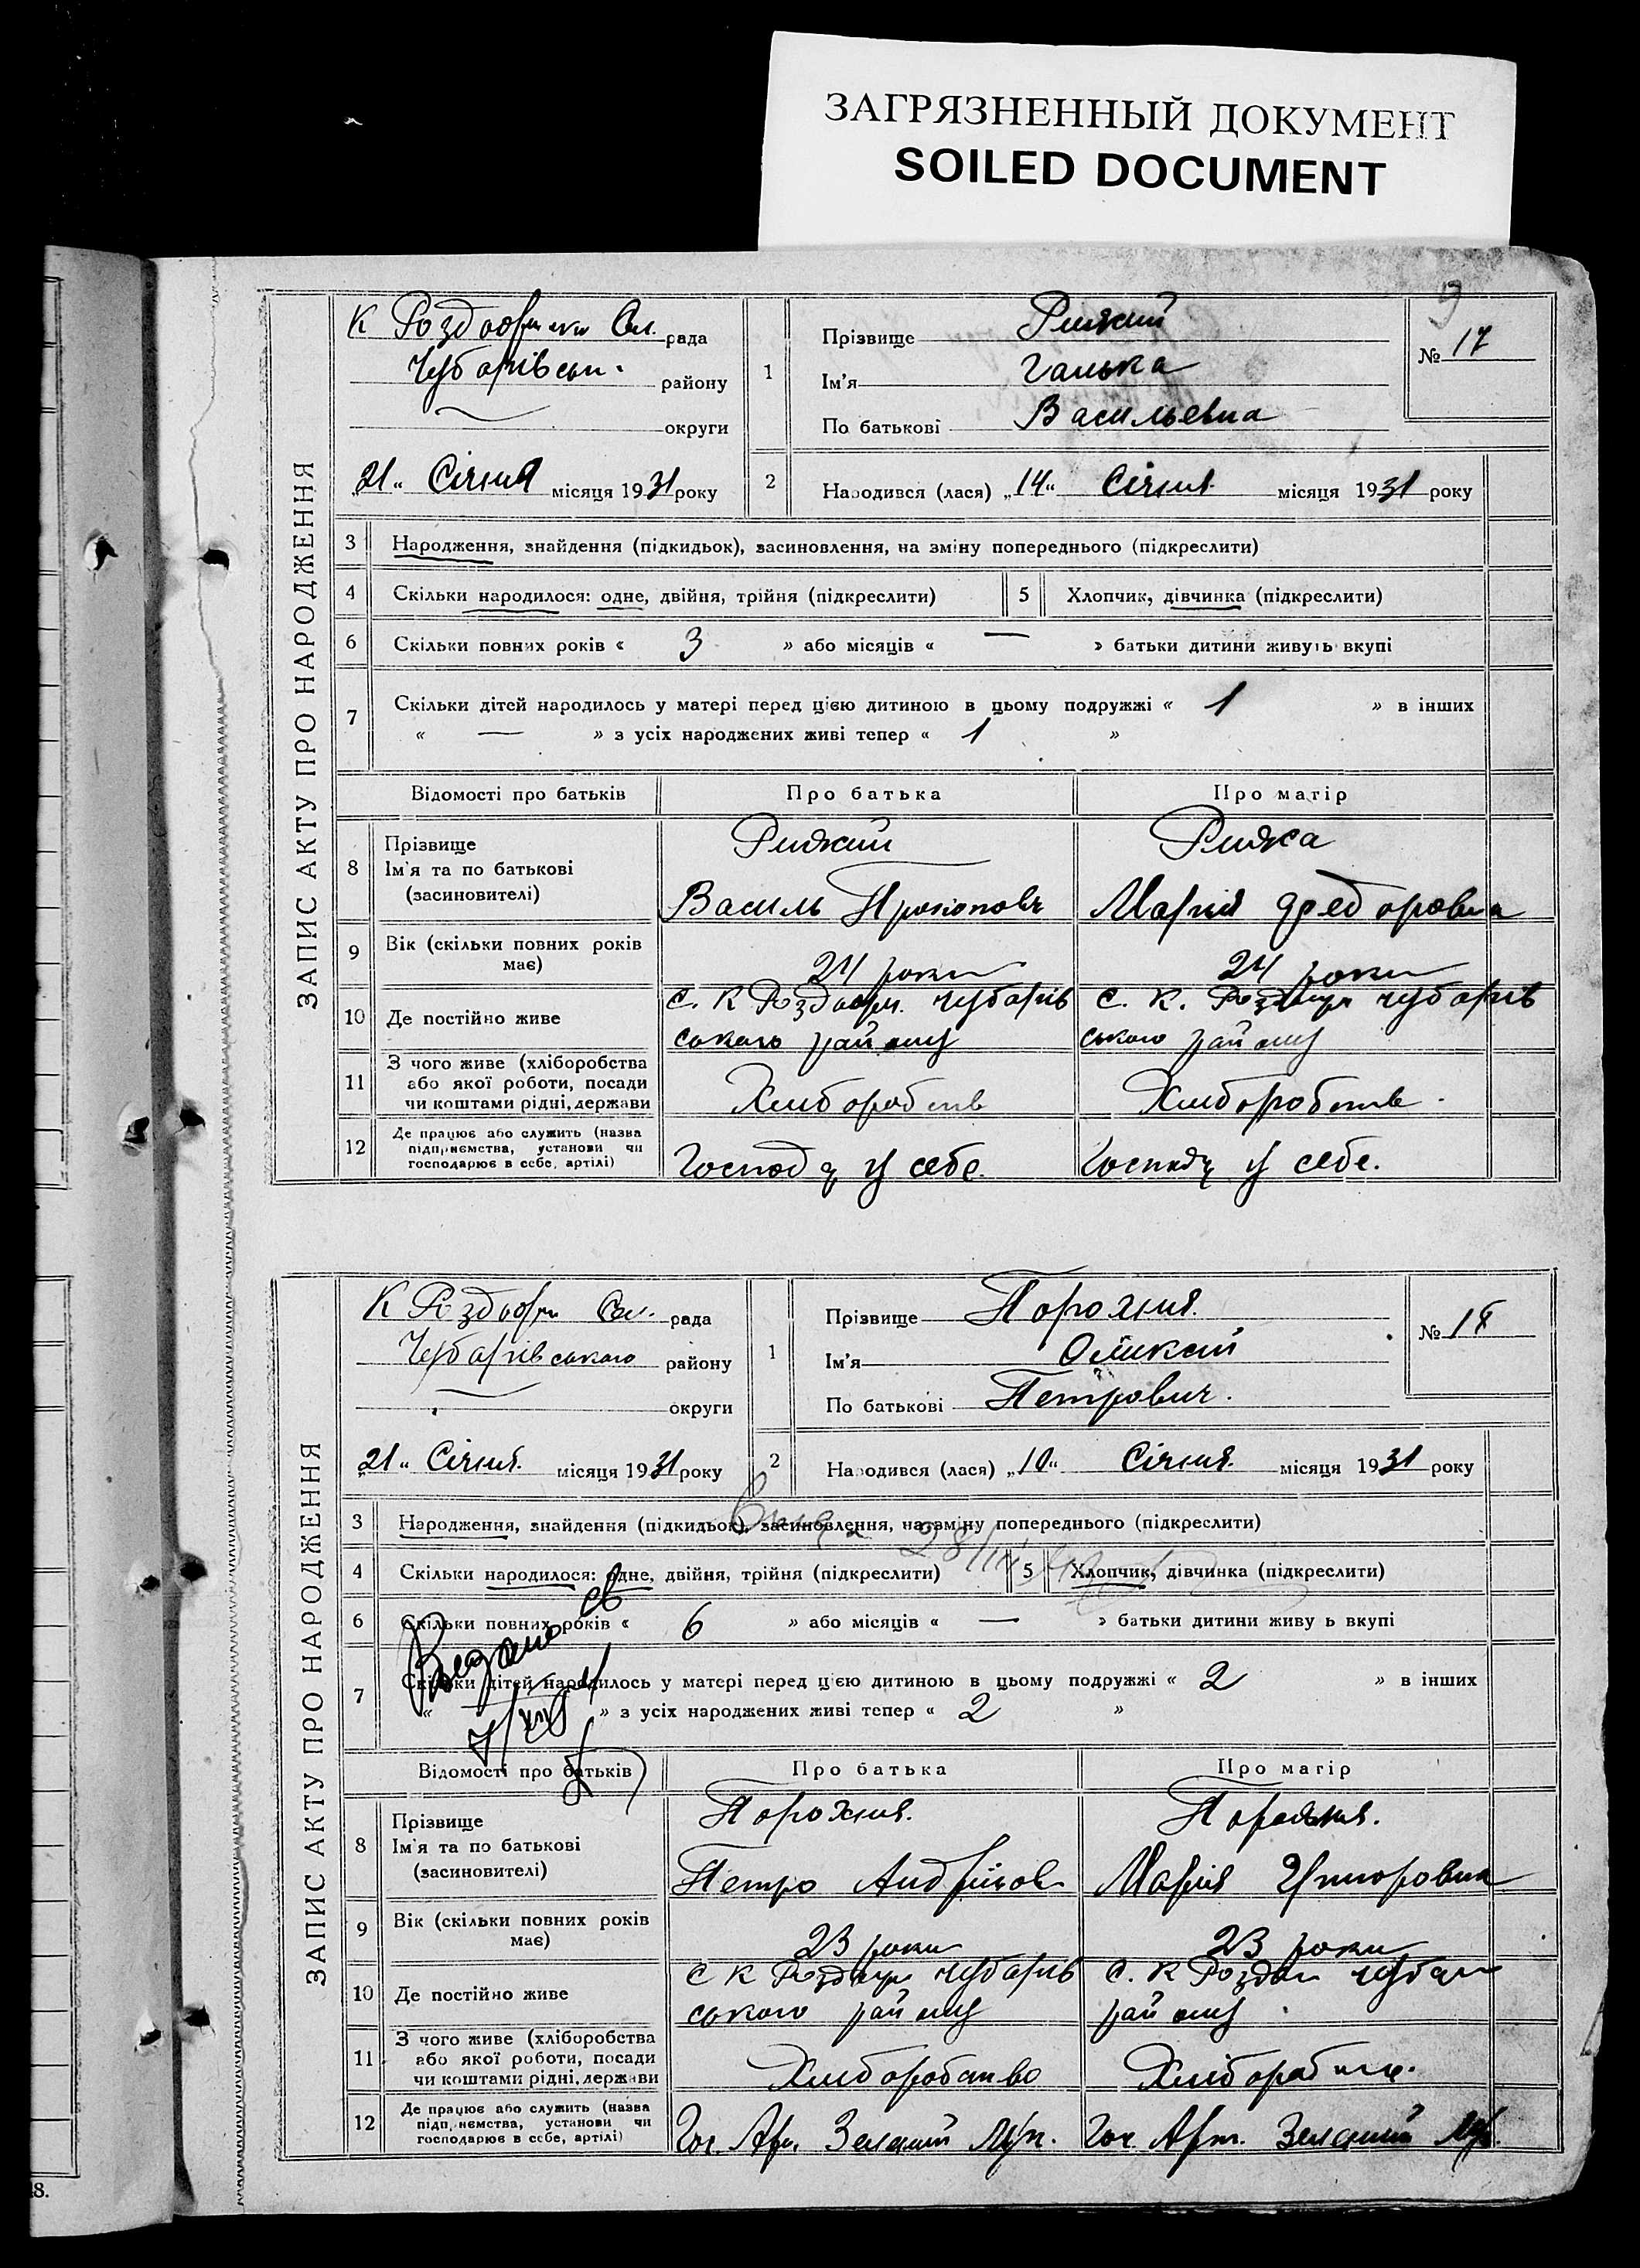 ЗАГРЯЗНЕННЫЙ ДОКУМЕНТ
SOILED DOCUMENT
9
ЗАПИС АКТУ ПРО НАРОДЖЕННЯ
К Роздорськ Сіл. рада
Чубарівськ. району
округи
„21" Січня місяця 1931 року
1
Прізвище Рижкий
Ім'я Галька
По батькові Васильевна
№ 17
2 Народився (лася) „14" Січня місяця 1931 року
3 Народження, знайдення (підкидьок), засиновлення, на зміну попереднього (підкреслити)
4 Скільки народилося: одне, двійня, трійня (підкреслити) 5 Хлопчик, дівчинка (підкреслити)
6 Скільки повних років « 3 » або місяців « — » батьки дитини живуть вкупі
7 Скільки дітей народилось у матері перед цією дитиною в цьому подружжі « 1 » в інших
« — » з усіх народжених живі тепер « 1 »
Відомості про батьків Про батька Про матір
8 Прізвище
Ім'я та по батькові
(засиновителі)
Рижкий Рижка
Василь Прокопов Мария Федоровна
9 Вік (скільки повних років має) 24 роки 24 роки
10 Де постійно живе
с. К Роздорк. Чубарів с. К. Роздор Чубарів
ського району ського району
11 З чого живе (хліборобства
або якої роботи, посади
чи коштами рідні, держави
Хлиборобств Хлиборобств.
12 Де працює або служить (назва
підприємства, установи чи
господарює в себе, артілі)
Господ у себе. Господ у себе.
ЗАПИС АКТУ ПРО НАРОДЖЕННЯ
К Роздорк Сіл. рада
Чубарівського району
округи
„21" Січня. місяця 1931 року
1
Прізвище Порожня.
Ім'я Олик
По батькові Петрович.
№ 18
2 Народився (лася) „10" Січня. місяця 1931 року
3 Народження, знайдення (підкидьок), засиновлення, на зміну попереднього (підкреслити)
28/III
4 Скільки народилося: одне, двійня, трійня (підкреслити) 5 Хлопчик, дівчинка (підкреслити)
6 Скільки повних років « 6 » або місяців « — » батьки дитини живу ь вкупі
Видано св
7 Скільки дітей народилось у матері перед цією дитиною в цьому подружжі « 2 » в інших
« » з усіх народжених живі тепер « 2 »
Відомості про батьків Про батька Про матір
8 Прізвище
Ім'я та по батькові
(засиновителі)
Порожня. Порожня.
Петро Андрійов Марія
9 Вік (скільки повних років має) 23 роки 23 роки
10 Де постійно живе
с К Роздор Чубарів с. К Роздор Чубар
ського району району
11 З чого живе (хліборобства
або якої роботи, посади
чи коштами рідні, держави
Хлиборобство Хлиборобств.
12 Де працює або служить (назва
підприємства, установи чи
господарює в себе, артілі)
Гос. Арт. Зелений Луг. Гос. Арт. Зелений Луг.
8.